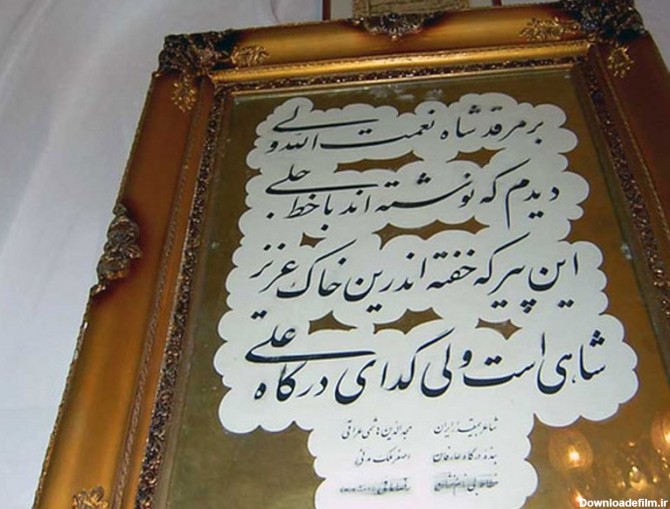 بر مرقد شاه نعمت الله ولی
دیدم که نوشته اند با خط جلی
این پیر که خفته اندرین خاک عزیز
شاهی است ولی گدای درگاه علی
شاعر ایران مجدالدین هاشمی عراقی
بنده درگاه عارفان اصغر
Downloadefilm.ir